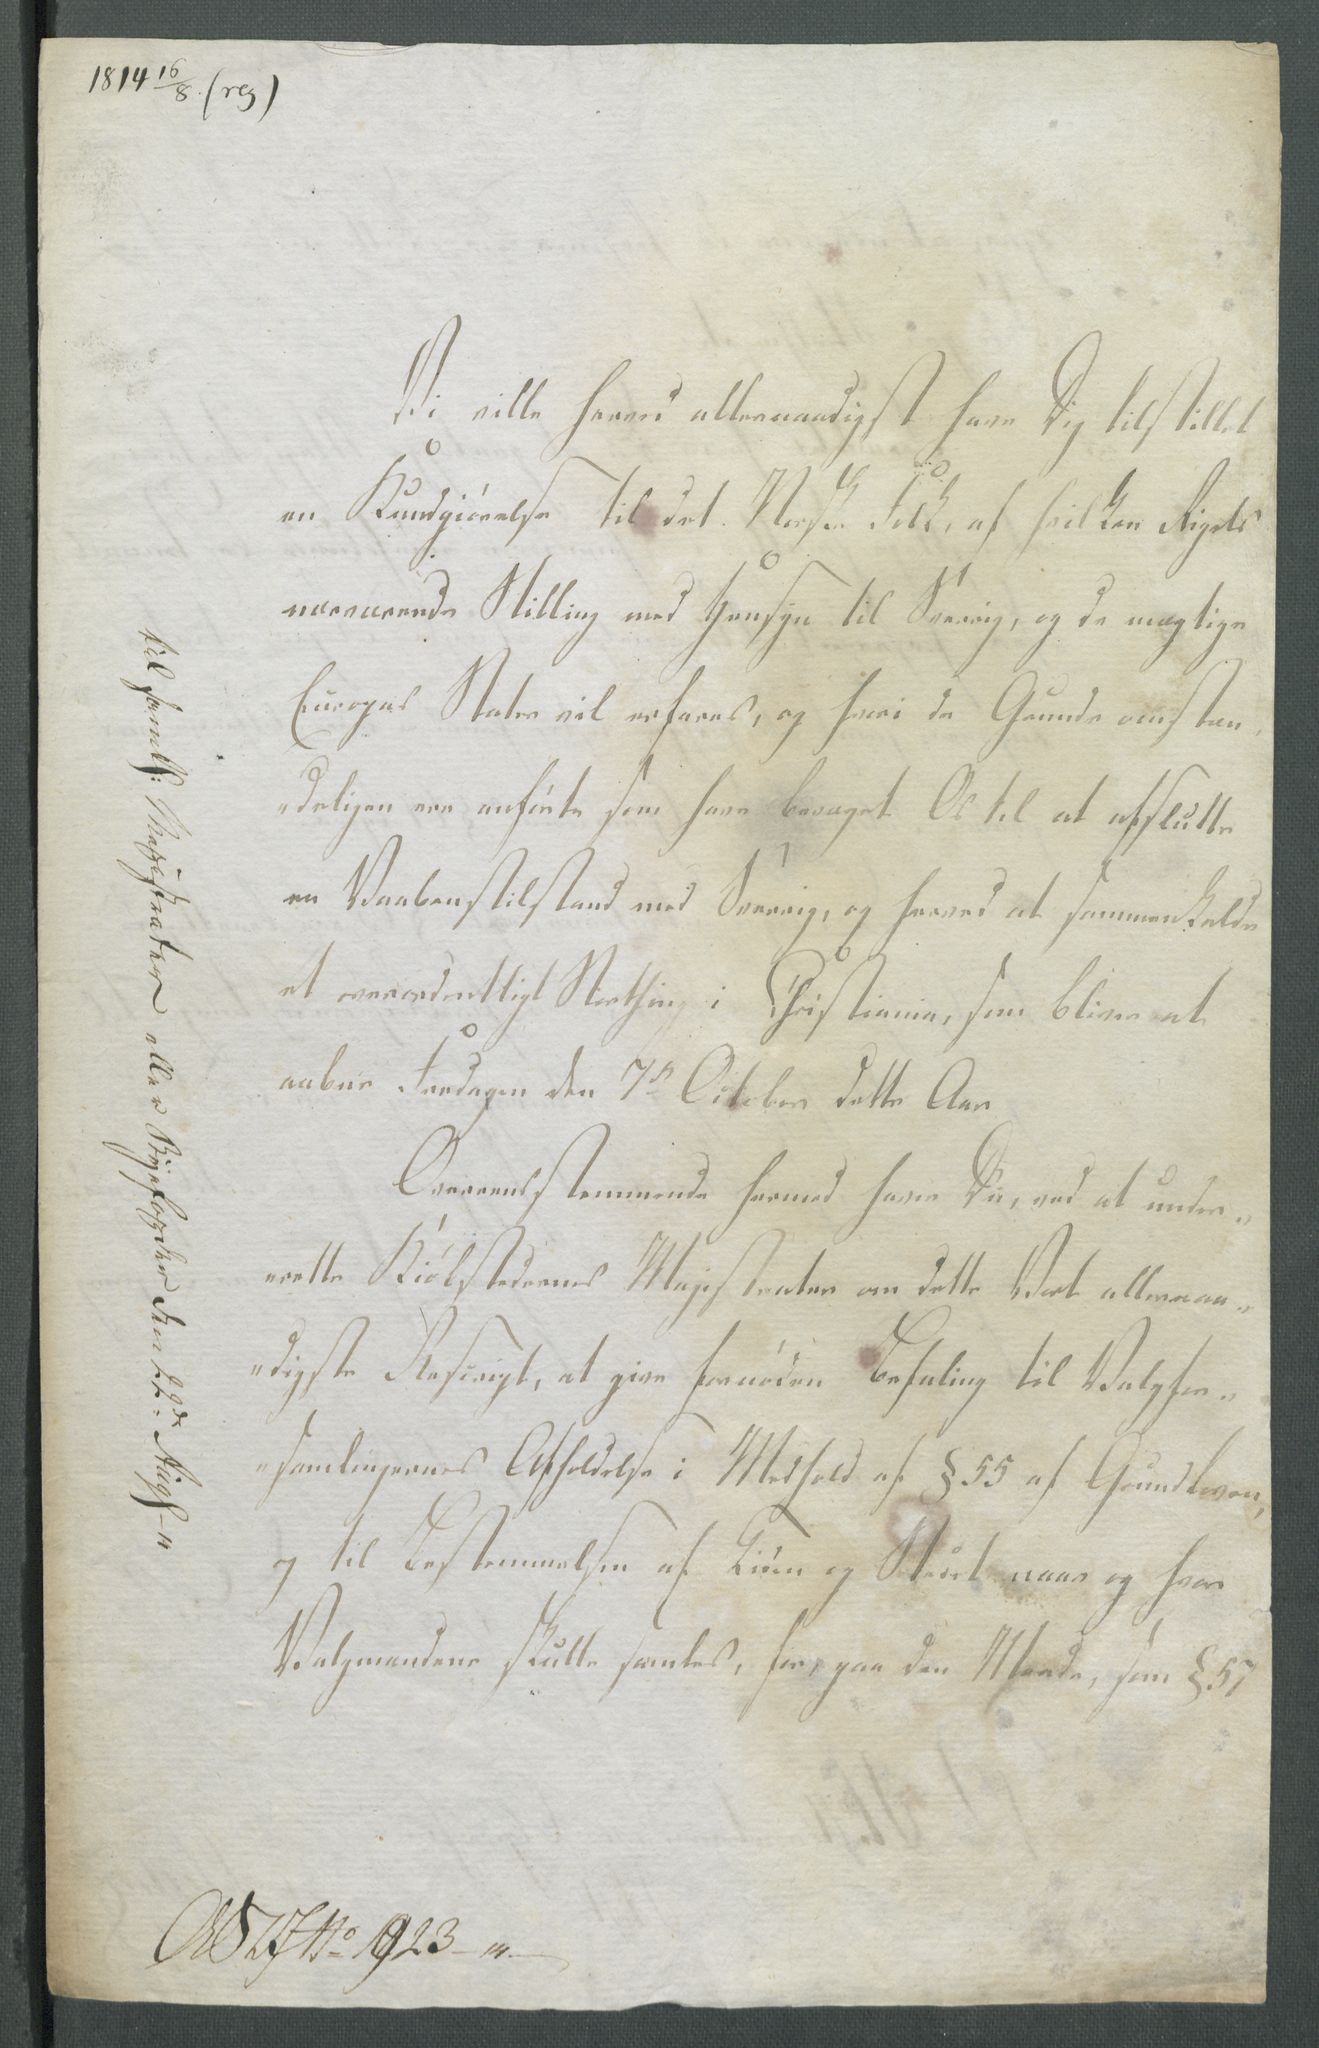 1814 16/8. (reg)
Vi ville herved allernaadigst have Dig tilstillet
en Kundgiörelse til det Norske Folk, af hvilken Rigets
nærværende Stilling med Hensyn til Sverrig, og de mægtige
Europas Stater vil erfares, og hvori de Grunde omstæn
„deligen ere anförte som have bevæget Os til at afslutte
en Vaabenstilstand med Sverrig, og herved at sammenkalde
et overordentligt Storthing i Christiania, som bliver at
aabne Fredagen den 7de October dette Aar
Overeensstemmende hermed have Du, ved at under„
„rette Kiöbstedernes Magistrater om dette Vort allernaa„
„digste Rescript, at give fornöden Befaling til Valgfor„
„samlingernes Afholdelse i Medhold af § 55 af Grundloven,
og til Bestemmelsen af Tiden og Stædet naar og hvor
Valgmændene skulle samles, for, paa den Maade, som § 57
til samtl: Magistrater eller Byefogder den 22de Aug:
No 1923